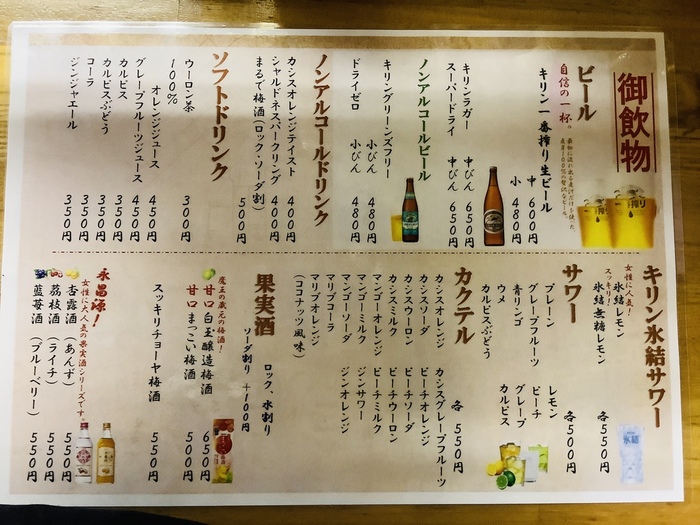 御飲物
ビール
自信の一杯。
キリン一番搾り生ビール
中 600円
小 480円
キリンラガー 中びん 650円
スーパードライ 中びん 650円
ノンアルコールビール
キリングリーンズフリー 小びん 480円
ドライゼロ 小びん 480円
ノンアルコールドリンク
カシスオレンジテイスト 400円
シャルドネスパークリング 400円
まるで梅酒(ロック・ソーダ割) 500円
ソフトドリンク
ウーロン茶 300円
100%
オレンジジュース 450円
グレープフルーツジュース 450円
カルピス 350円
カルピスぶどう 350円
コーラ 350円
ジンジャエール 350円
キリン氷結サワー
女性に人気!
氷結レモン
スッキリ!
氷結無糖レモン
各550円
サワー
各500円
プレーン レモン
グレープフルーツ ピーチ
青リンゴ グレープ
ウメ カルピス
カルピスぶどう
カクテル
各550円
カシスオレンジ カシスグレープフルーツ
カシスソーダ ピーチオレンジ
カシスウーロン ピーチソーダ
カシスミルク ピーチウーロン
マンゴーオレンジ ピーチミルク
マンゴーミルク ジンサワー
マンゴーソーダ ジンオレンジ
マリブコーラ
マリブオレンジ
(ココナッツ風味)
果実酒
ロック、水割り
ソーダ割り +100円
魔王の蔵元の梅酒!
甘口 白玉醸造梅酒 650円
甘口 まっこい梅酒 500円
スッキリチョーヤ梅酒 550円
永昌源!
女性に大人気の果実酒シリーズです。
杏露酒(あんず) 550円
茘枝酒(ライチ) 550円
藍苺酒(ブルーベリー) 550円
氷結